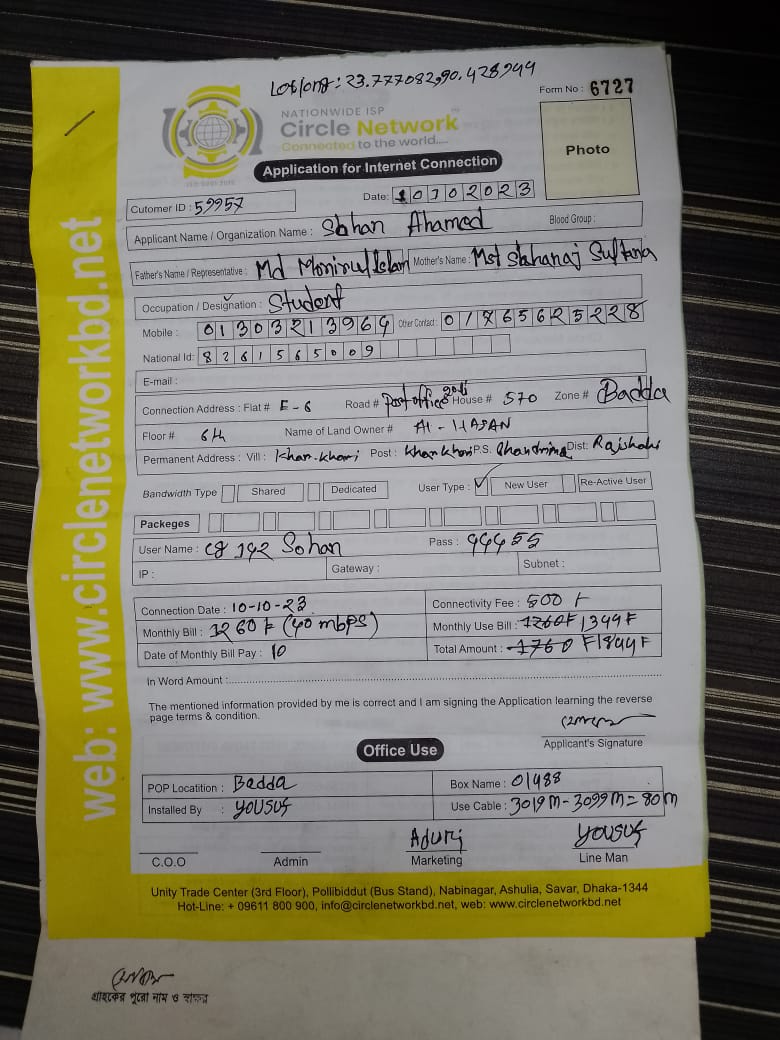 Lat/long: 23.777082,90.428944
Form No : 6727
NATIONWIDE ISP
Circle Network
Connected to the world....
Photo
Application for Internet Connection
Date: 10102023
Cutomer ID : 59957
Applicant Name / Organization Name : Sohan Ahamed Blood Group :
Father's Name / Representative : Md Monirul Islam Mother's Name : Mst Shahanaj Sultana
Occupation / Designation : Student
Mobile : 01303213964 Other Contact : 01765625228
National Id: 8261565009
E-mail :
Connection Address : Flat # E-6 Road # Post office goli House # 570 Zone # Badda
Floor # 6th Name of Land Owner # Al-HASAN
Permanent Address : Vill : Khar-khori Post : Kharkhori P.S. Chandrima Dist: Rajshahi
Bandwidth Type Shared Dedicated User Type : ✓ New User Re-Active User
Packeges
User Name : Pass : 99455
IP : Gateway : Subnet :
Connection Date : 10-10-23 Connectivity Fee : 500 ৳
Monthly Bill : 1260 ৳ (40 mbps) Monthly Use Bill : 1260৳ 1349৳
Date of Monthly Bill Pay : 10 Total Amount : 1760 ৳
In Word Amount :
The mentioned information provided by me is correct and I am signing the Application learning the reverse
page terms & condition.
Applicant's Signature
Office Use
POP Locatition : Badda Box Name : 01488
Installed By : YOUSUF Use Cable : 3019 M - 3099 M = 80 M
YOUSUF
C.O.O Admin Marketing Line Man
Unity Trade Center (3rd Floor), Pollibiddut (Bus Stand), Nabinagar, Ashulia, Savar, Dhaka-1344
Hot-Line: + 09611 800 900, info@circlenetworkbd.net, web: www.circlenetworkbd.net
web: www.circlenetworkbd.net
গ্রাহকের পুরো নাম ও স্বাক্ষর